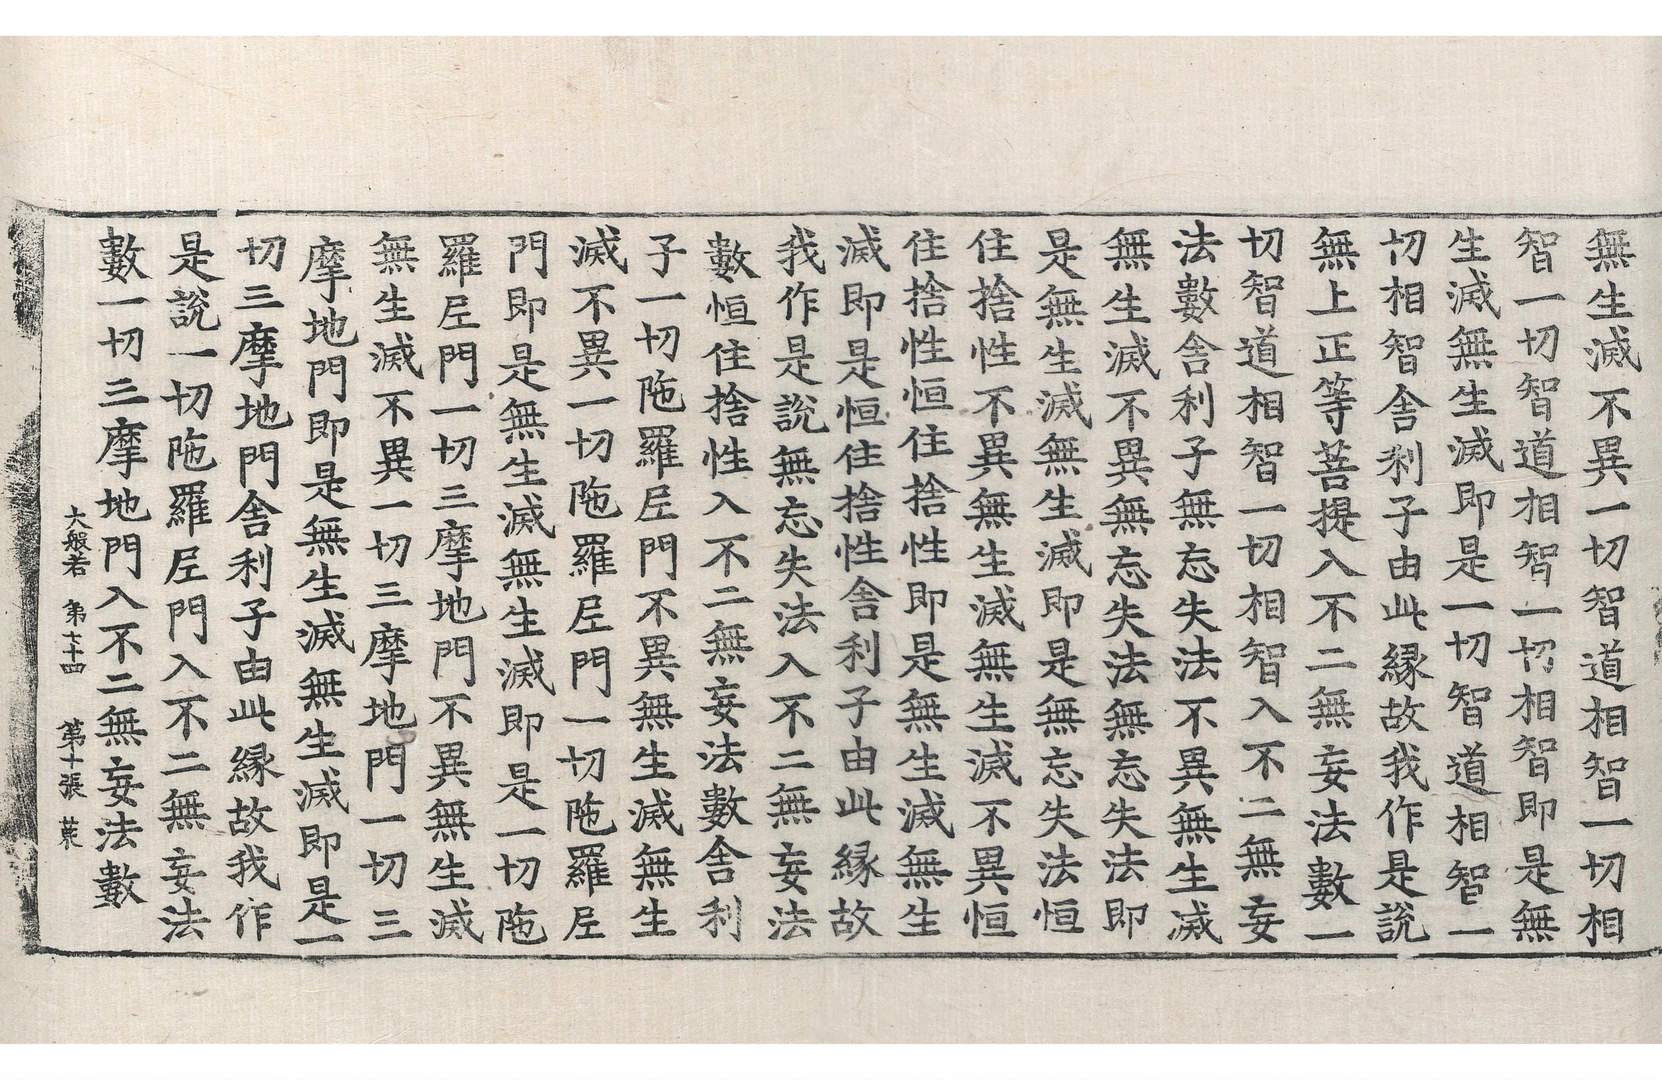 無生滅不異一切智道相智一切相
智一切智道相智一切相智即是無
生滅無生滅即是一切智道相智一
切相智舍利子由此緣故我作是說
無上正等菩提入不二無妄法數一
切智道相智一切相智入不二無妄
法數舍利子無忘失法不異無生滅
無生滅不異無忘失法無忘失法即
是無生滅無生滅即是無忘失法恒
住捨性不異無生滅無生滅不異恒
住捨性恒住捨性即是無生滅無生
滅即是恒住捨性舍利子由此緣故
我作是說無忘失法入不二無妄法
數恒住捨性入不二無妄法數舍利
子一切陁羅尼門不異無生滅無生
滅不異一切陁羅尼門一切陁羅尼
門即是無生滅無生滅即是一切陁
羅尼門一切三摩地門不異無生滅
無生滅不異一切三摩地門一切三
摩地門即是無生滅無生滅即是一
切三摩地門舍利子由此緣故我作
是說一切陁羅尼門入不二無妄法
數一切三摩地門入不二無妄法數
大般若 第七十四 第十張 荒